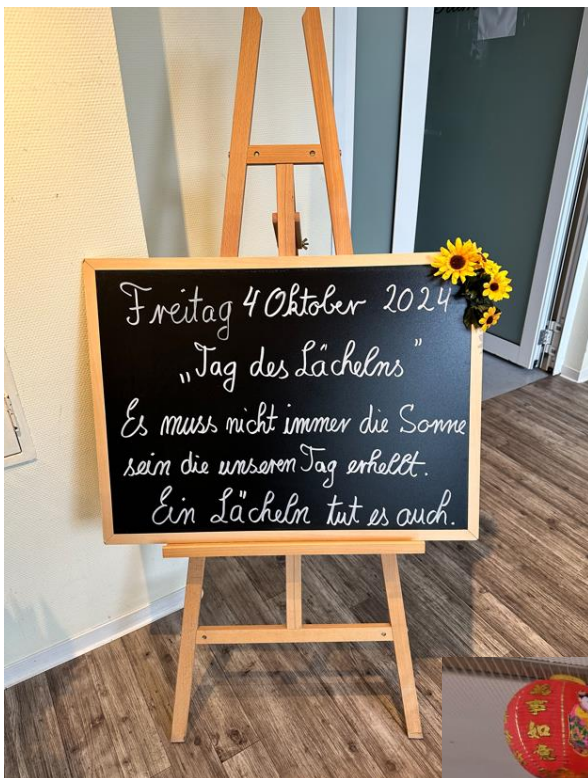 Freitag 4 Oktober 2024
„Tag des Lächelns“
Es muss nicht immer die Sonne
sein die unseren Tag erhellt.
Ein Lächeln tut es auch.
事如意